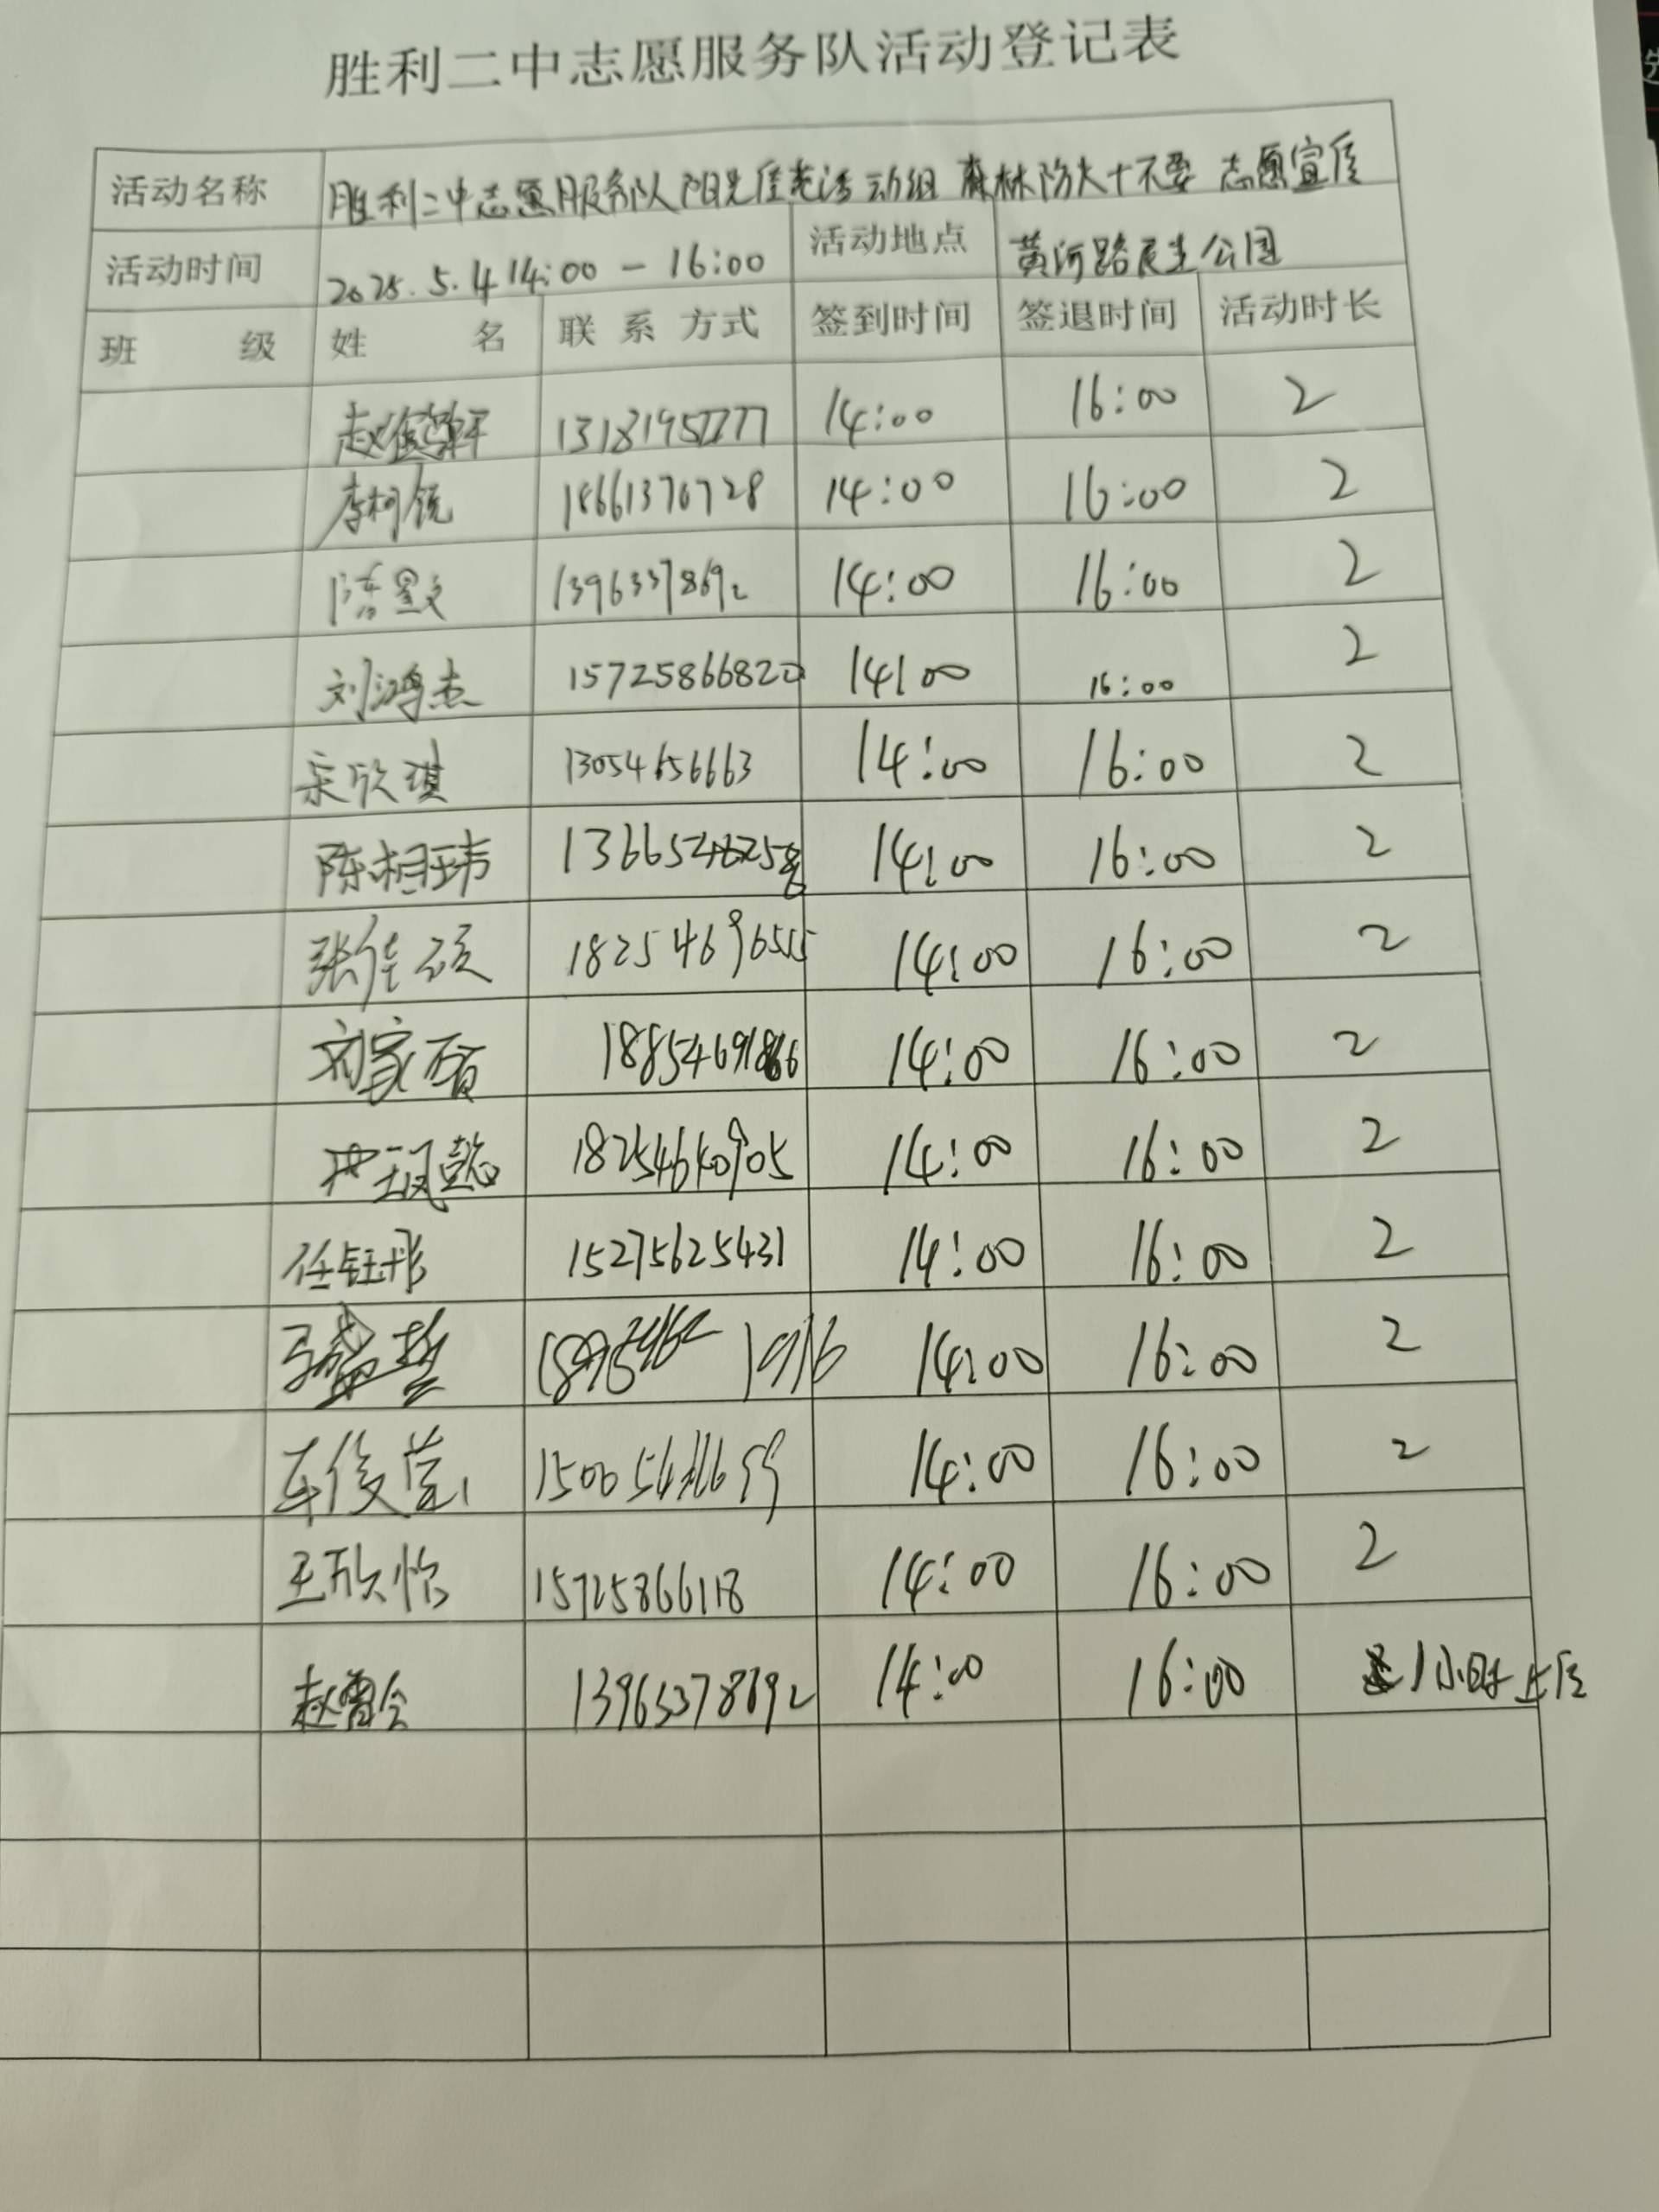 胜利二中志愿服务队活动登记表
活动名称 胜利二中志愿服务队阳光信老活动组 森林防火十不要 志愿宣传
活动时间 2025.5.4 14:00-16:00 活动地点 黄河路民生公园
班 级 姓 名 联系方式 签到时间 签退时间 活动时长
13181957777 14:00 16:00 2
李柯锐 18661370728 14:00 16:00 2
13963378692 14:00 16:00 2
刘鸿杰 15725866820 14:00 16:00 2
宋欣琪 13054656663 14:00 16:00 2
陈相玮 14:00 16:00 2
张佳硕 18254696555 14:00 16:00 2
刘家硕 14:00 16:00 2
14:00 16:00 2
任钰彤 15275625431 14:00 16:00 2
14:00 16:00 2
14:00 16:00 2
王欣怡 14:00 16:00 2
13963378692 14:00 16:00 1小时上传